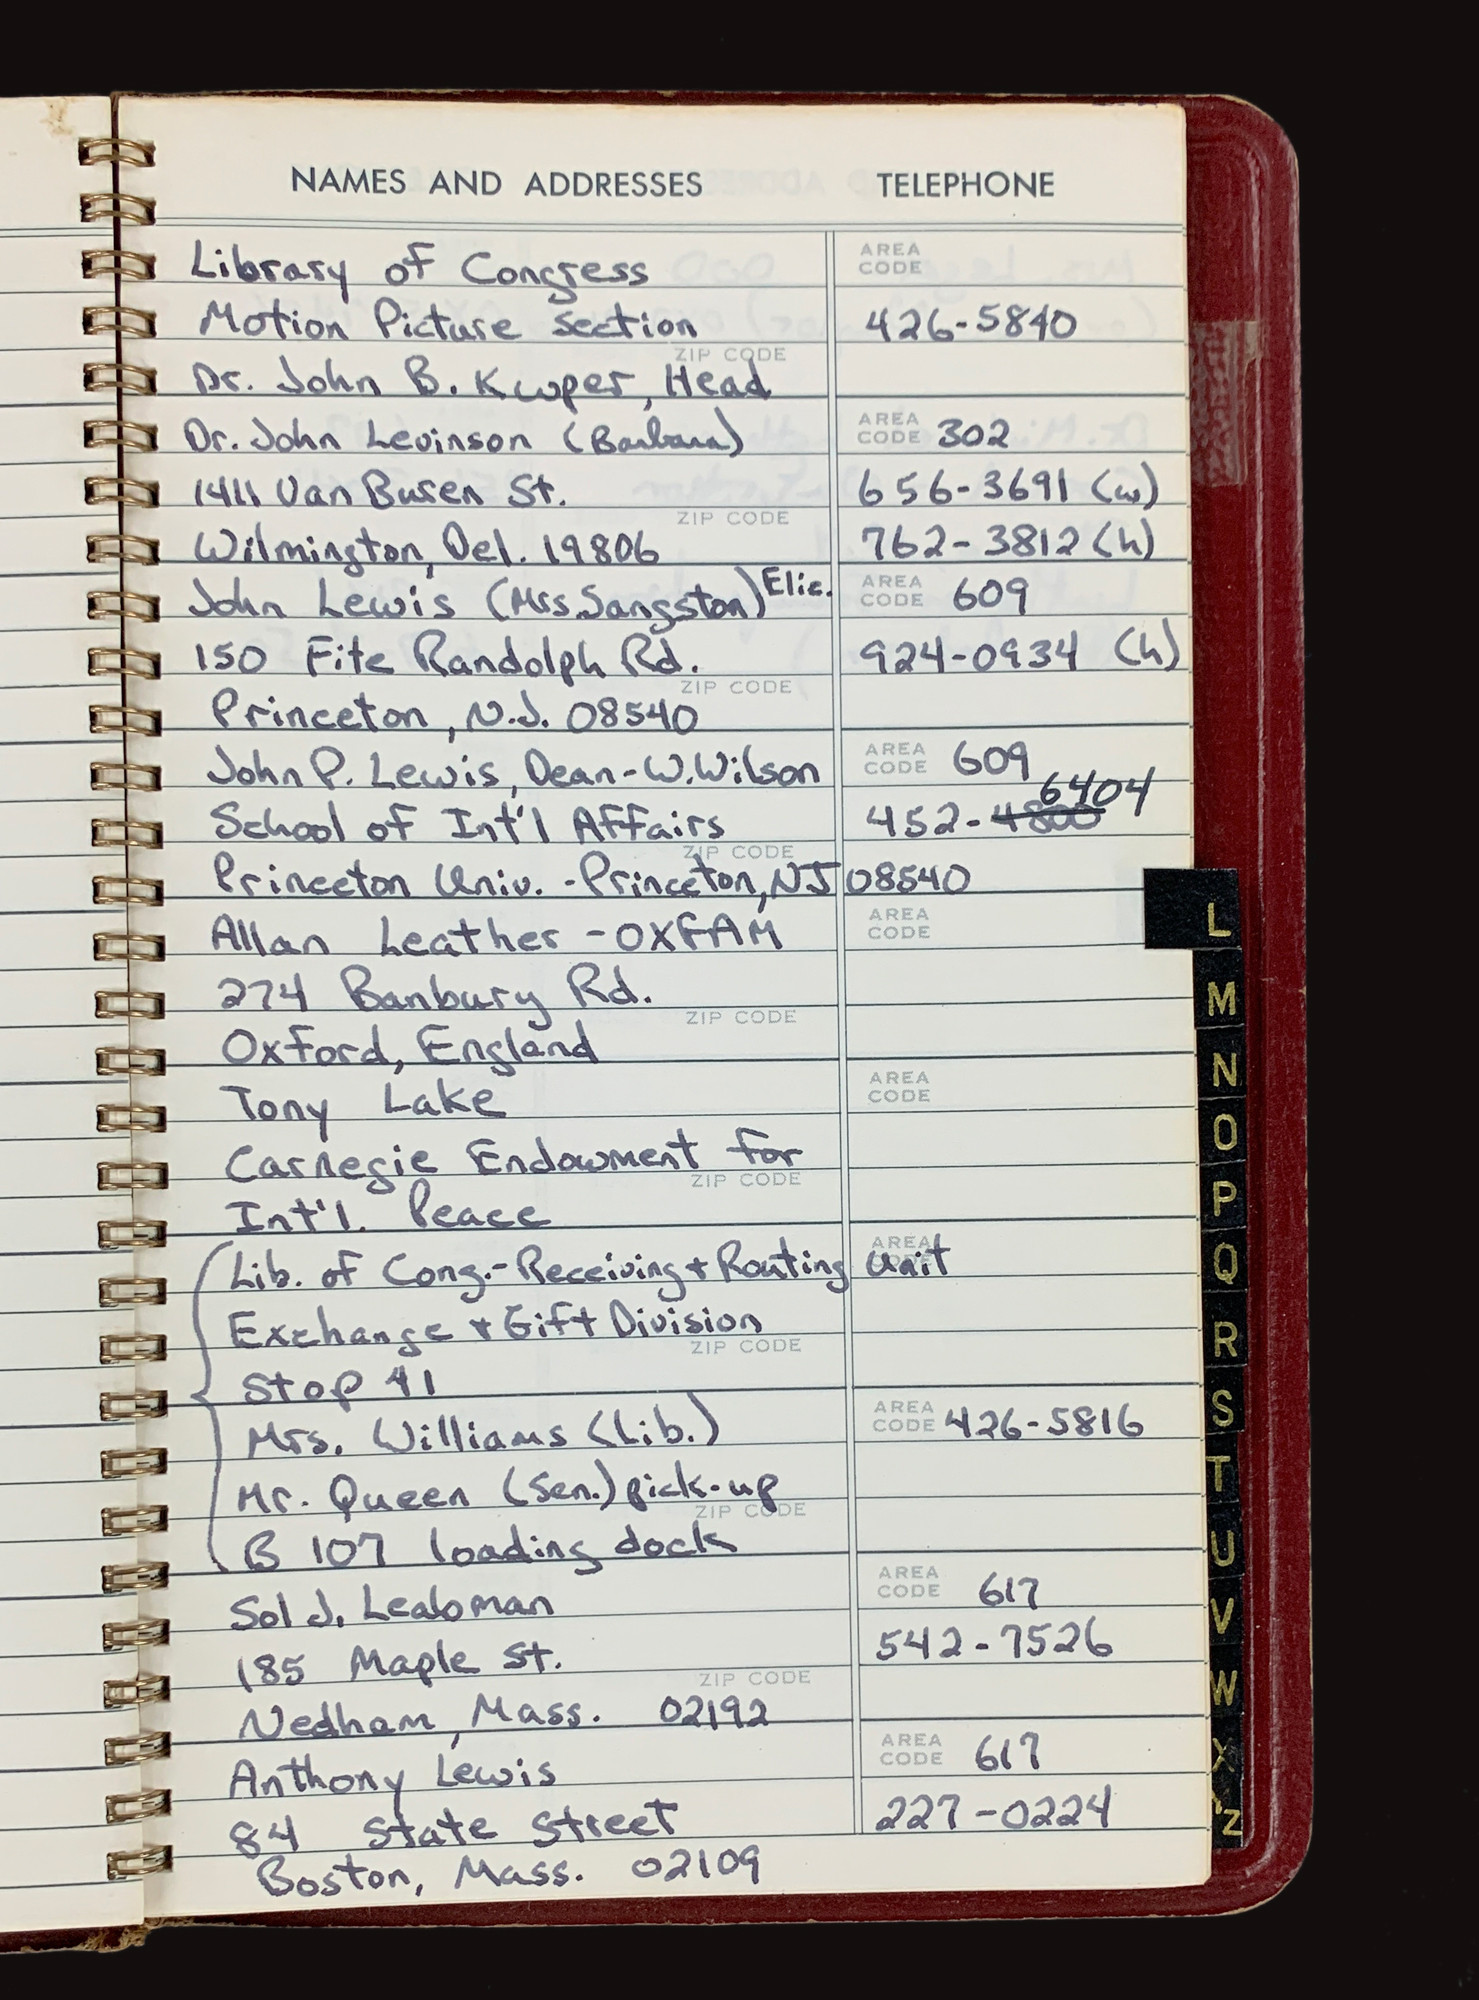 NAMES AND ADDRESSES TELEPHONE
Library of Congress AREA CODE
Motion Picture Section 426-5840
ZIP CODE
Dr. John B. Kuiper, Head
Dr. John Levinson (Barbara) AREA CODE 302
1411 Van Buren St. 656-3691 (w)
ZIP CODE
Wilmington, Del. 19806 762-3812 (h)
John Lewis (Mrs. Sangston) Eliz. AREA CODE 609
150 Fitz Randolph Rd. 924-0934 (h)
ZIP CODE
Princeton, N.J. 08540
John P. Lewis, Dean - W. Wilson AREA CODE 609
6404
School of Int'l Affairs 452-4800
ZIP CODE
Princeton Univ. - Princeton, NJ 08540
Allan Leather - OXFAM AREA CODE
274 Banbury Rd.
ZIP CODE
Oxford, England
Tony Lake AREA CODE
Carnegie Endowment for
ZIP CODE
Int'l. Peace
Lib. of Cong.- Receiving + Routing Unit AREA CODE
Exchange + Gift Division
ZIP CODE
Stop 41
Mrs. Williams (Lib.) AREA CODE 426-5816
Mr. Queen (Sen.) pick-up
ZIP CODE
B 107 loading dock
Sol J. AREA CODE 617
185 Maple St. 542-7526
ZIP CODE
Nedham, Mass. 02192
Anthony Lewis AREA CODE 617
84 State Street 227-0224
Boston, Mass. 02109
L
M
N
O
P
Q
R
S
T
U
V
W
X
Y
Z